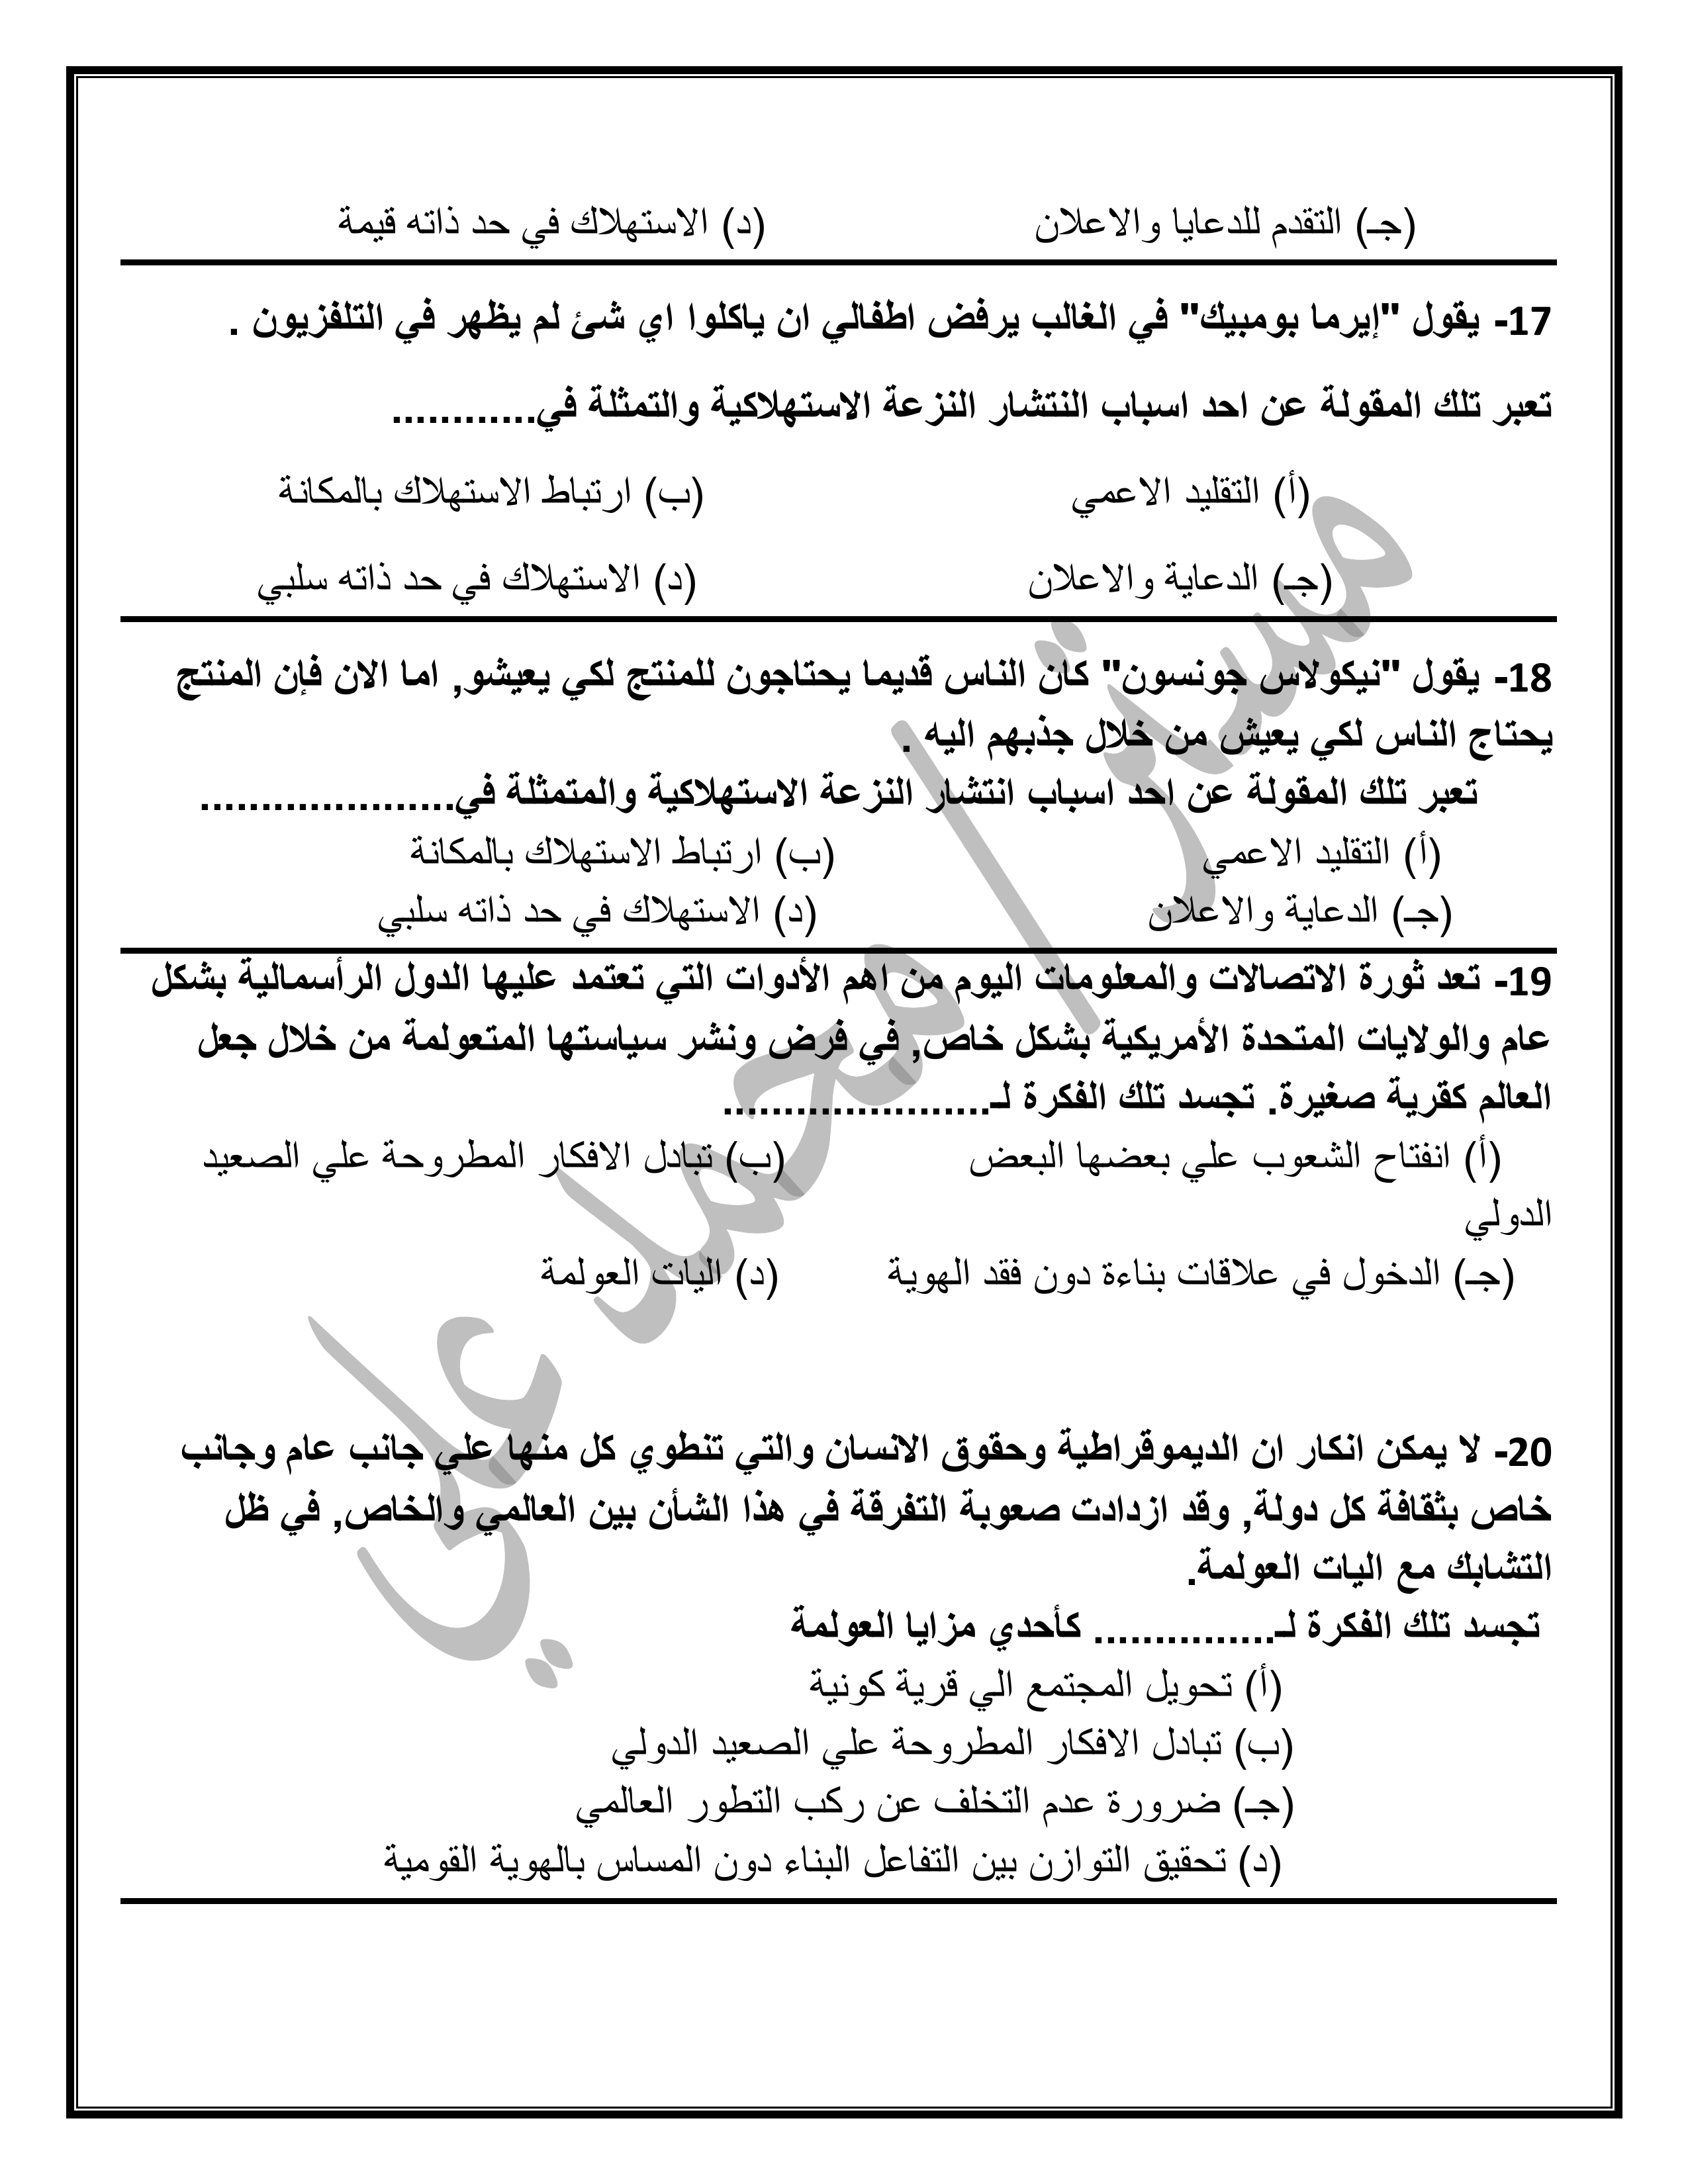 (جـ) التقدم للدعايا والاعلان (د) الاستهلاك في حد ذاته قيمة
17- يقول "إيرما بومبيك" في الغالب يرفض اطفالي ان ياكلوا اي شئ لم يظهر في التلفزيون .
تعبر تلك المقولة عن احد اسباب النتشار النزعة الاستهلاكية والتمثلة في............
(أ) التقليد الاعمي (ب) ارتباط الاستهلاك بالمكانة
(جـ) الدعاية والاعلان (د) الاستهلاك في حد ذاته سلبي
18- يقول "نيكولاس جونسون" كان الناس قديما يحتاجون للمنتج لكي يعيشو, اما الان فإن المنتج
يحتاج الناس لكي يعيش من خلال جذبهم اليه .
تعبر تلك المقولة عن احد اسباب انتشار النزعة الاستهلاكية والمتمثلة في.....................
(أ) التقليد الاعمي (ب) ارتباط الاستهلاك بالمكانة
(جـ) الدعاية والاعلان (د) الاستهلاك في حد ذاته سلبي
19- تعد ثورة الاتصالات والمعلومات اليوم من اهم الأدوات التي تعتمد عليها الدول الرأسمالية بشكل
عام والولايات المتحدة الأمريكية بشكل خاص, في فرض ونشر سياستها المتعولمة من خلال جعل
العالم كقرية صغيرة. تجسد تلك الفكرة لـ......................
(أ) انفتاح الشعوب علي بعضها البعض (ب) تبادل الافكار المطروحة علي الصعيد
الدولي
(جـ) الدخول في علاقات بناءة دون فقد الهوية (د) اليات العولمة
20- لا يمكن انكار ان الديموقراطية وحقوق الانسان والتي تنطوي كل منها علي جانب عام وجانب
خاص بثقافة كل دولة, وقد ازدادت صعوبة التفرقة في هذا الشأن بين العالمي والخاص, في ظل
التشابك مع اليات العولمة.
تجسد تلك الفكرة لـ............... كأحدي مزايا العولمة
(أ) تحويل المجتمع الي قرية كونية
(ب) تبادل الافكار المطروحة علي الصعيد الدولي
(جـ) ضرورة عدم التخلف عن ركب التطور العالمي
(د) تحقيق التوازن بين التفاعل البناء دون المساس بالهوية القومية
مستر/ محمد علي